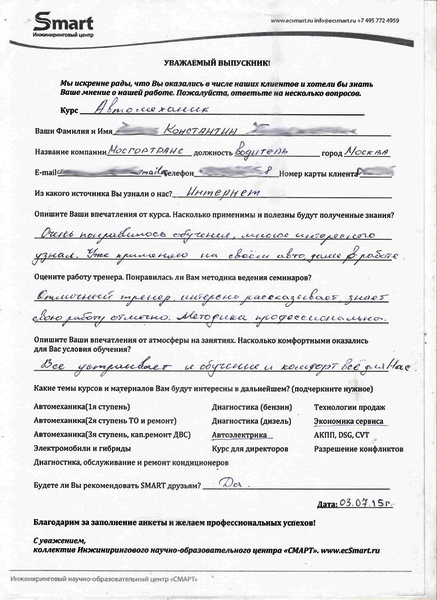 Smart
Инжиниринговый центр
www.ecsmart.ru info@ecsmart.ru +7 495 772 4959
УВАЖАЕМЫЙ ВЫПУСКНИК!
Мы искренне рады, что Вы оказались в числе наших клиентов и хотели бы знать
Ваше мнение о нашей работе. Пожалуйста, ответьте на несколько вопросов.
Курс Автомеханик
Ваши Фамилия и Имя Константин
Название компании Мосгортранс должность водитель город Москва
E-mail mail Телефон 8 Номер карты клиента 8
Из какого источника Вы узнали о нас? Интернет
Опишите Ваши впечатления от курса. Насколько применимы и полезны будут полученные знания?
Очень понравилось обучение, много интересного
узнал. Уже применяю на своём авто, даже в работе.
Оцените работу тренера. Понравилась ли Вам методика ведения семинаров?
Отличный тренер, интерсно рассказывает, знает
свою работу отлично. Методика профессиональна.
Опишите Ваши впечатления от атмосферы на занятиях. Насколько комфортными оказались
для Вас условия обучения?
Всё устраивает и обучение и комфорт всё для Нас.
Какие темы курсов и материалов Вам будут интересны в дальнейшем? (подчеркните нужное)
Автомеханика(1я ступень) Диагностика (бензин) Технологии продаж
Автомеханика(2я ступень ТО и ремонт) Диагностика (дизель) Экономика сервиса
Автомеханика(3я ступень, кап.ремонт ДВС) Автоэлектрика АКПП, DSG, CVT
Электромобили и гибриды Курс для директоров Разрешение конфликтов
Диагностика, обслуживание и ремонт кондиционеров
Будете ли Вы рекомендовать SMART друзьям? Да.
Дата: 03.07.15г.
Благодарим за заполнение анкеты и желаем профессиональных успехов!
С уважением,
коллектив Инжинирингового научно-образовательного центра «СМАРТ». www.ecSmart.ru
Инжиниринговый научно-образовательный центр «СМАРТ»